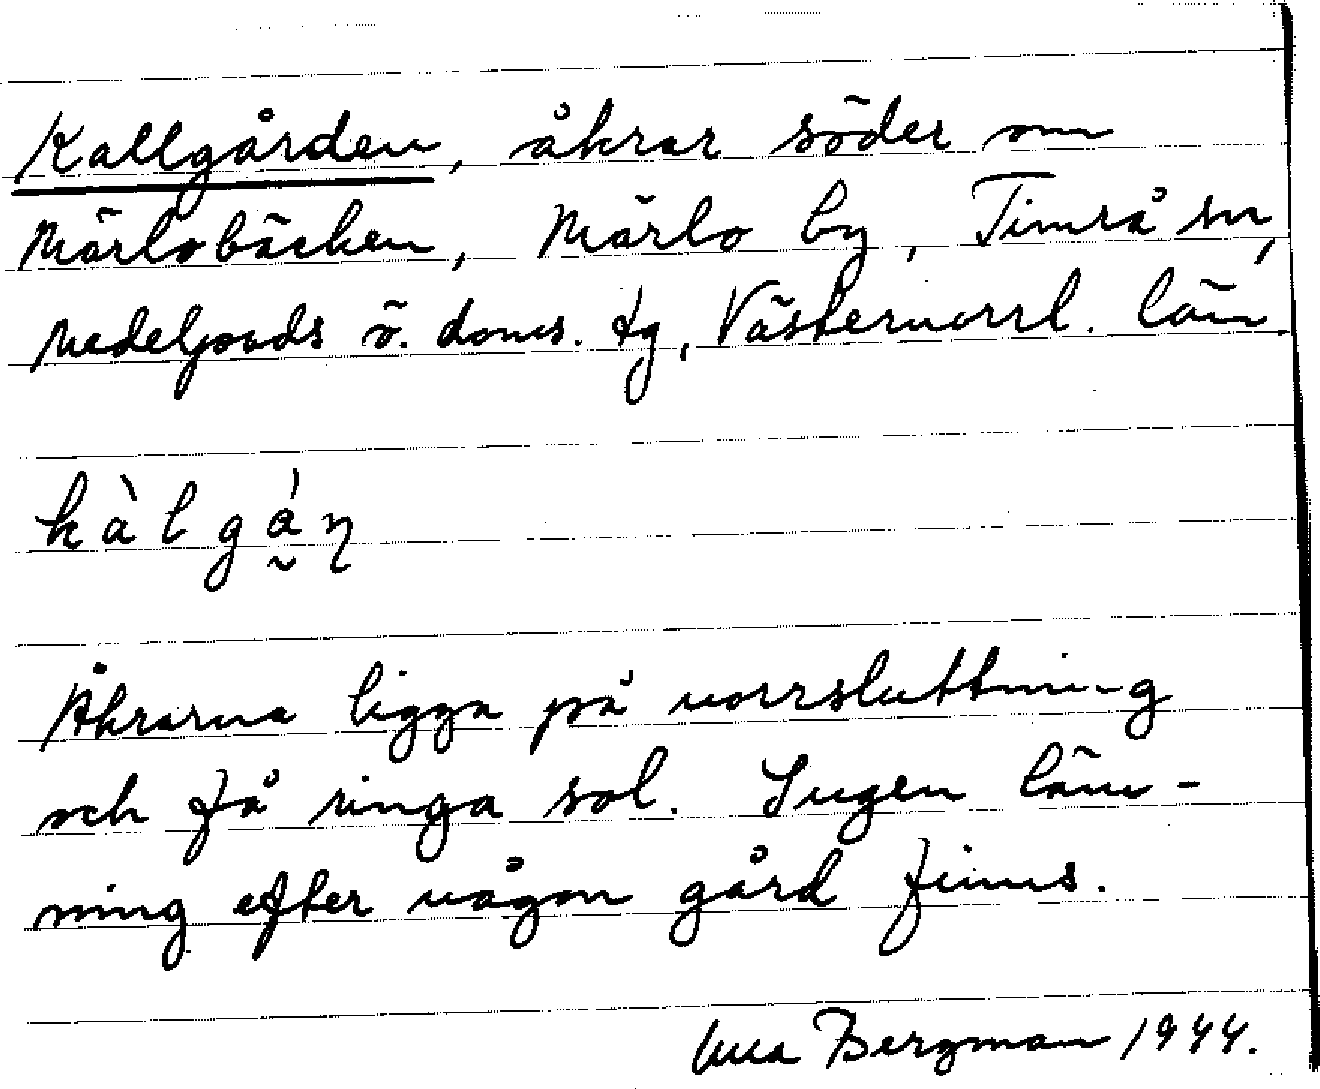 Kallgården, åkrar söder om
Märlobäcken, Märlo by, Timrå sn,
Medelpads ö. doms. tg, Västernorrl. län
kàlgá̰ṇ
Åkrarna ligga på norrsluttning
och få ringa sol. Ingen läm-
ning efter någon gård finns.
Bergman 1944.